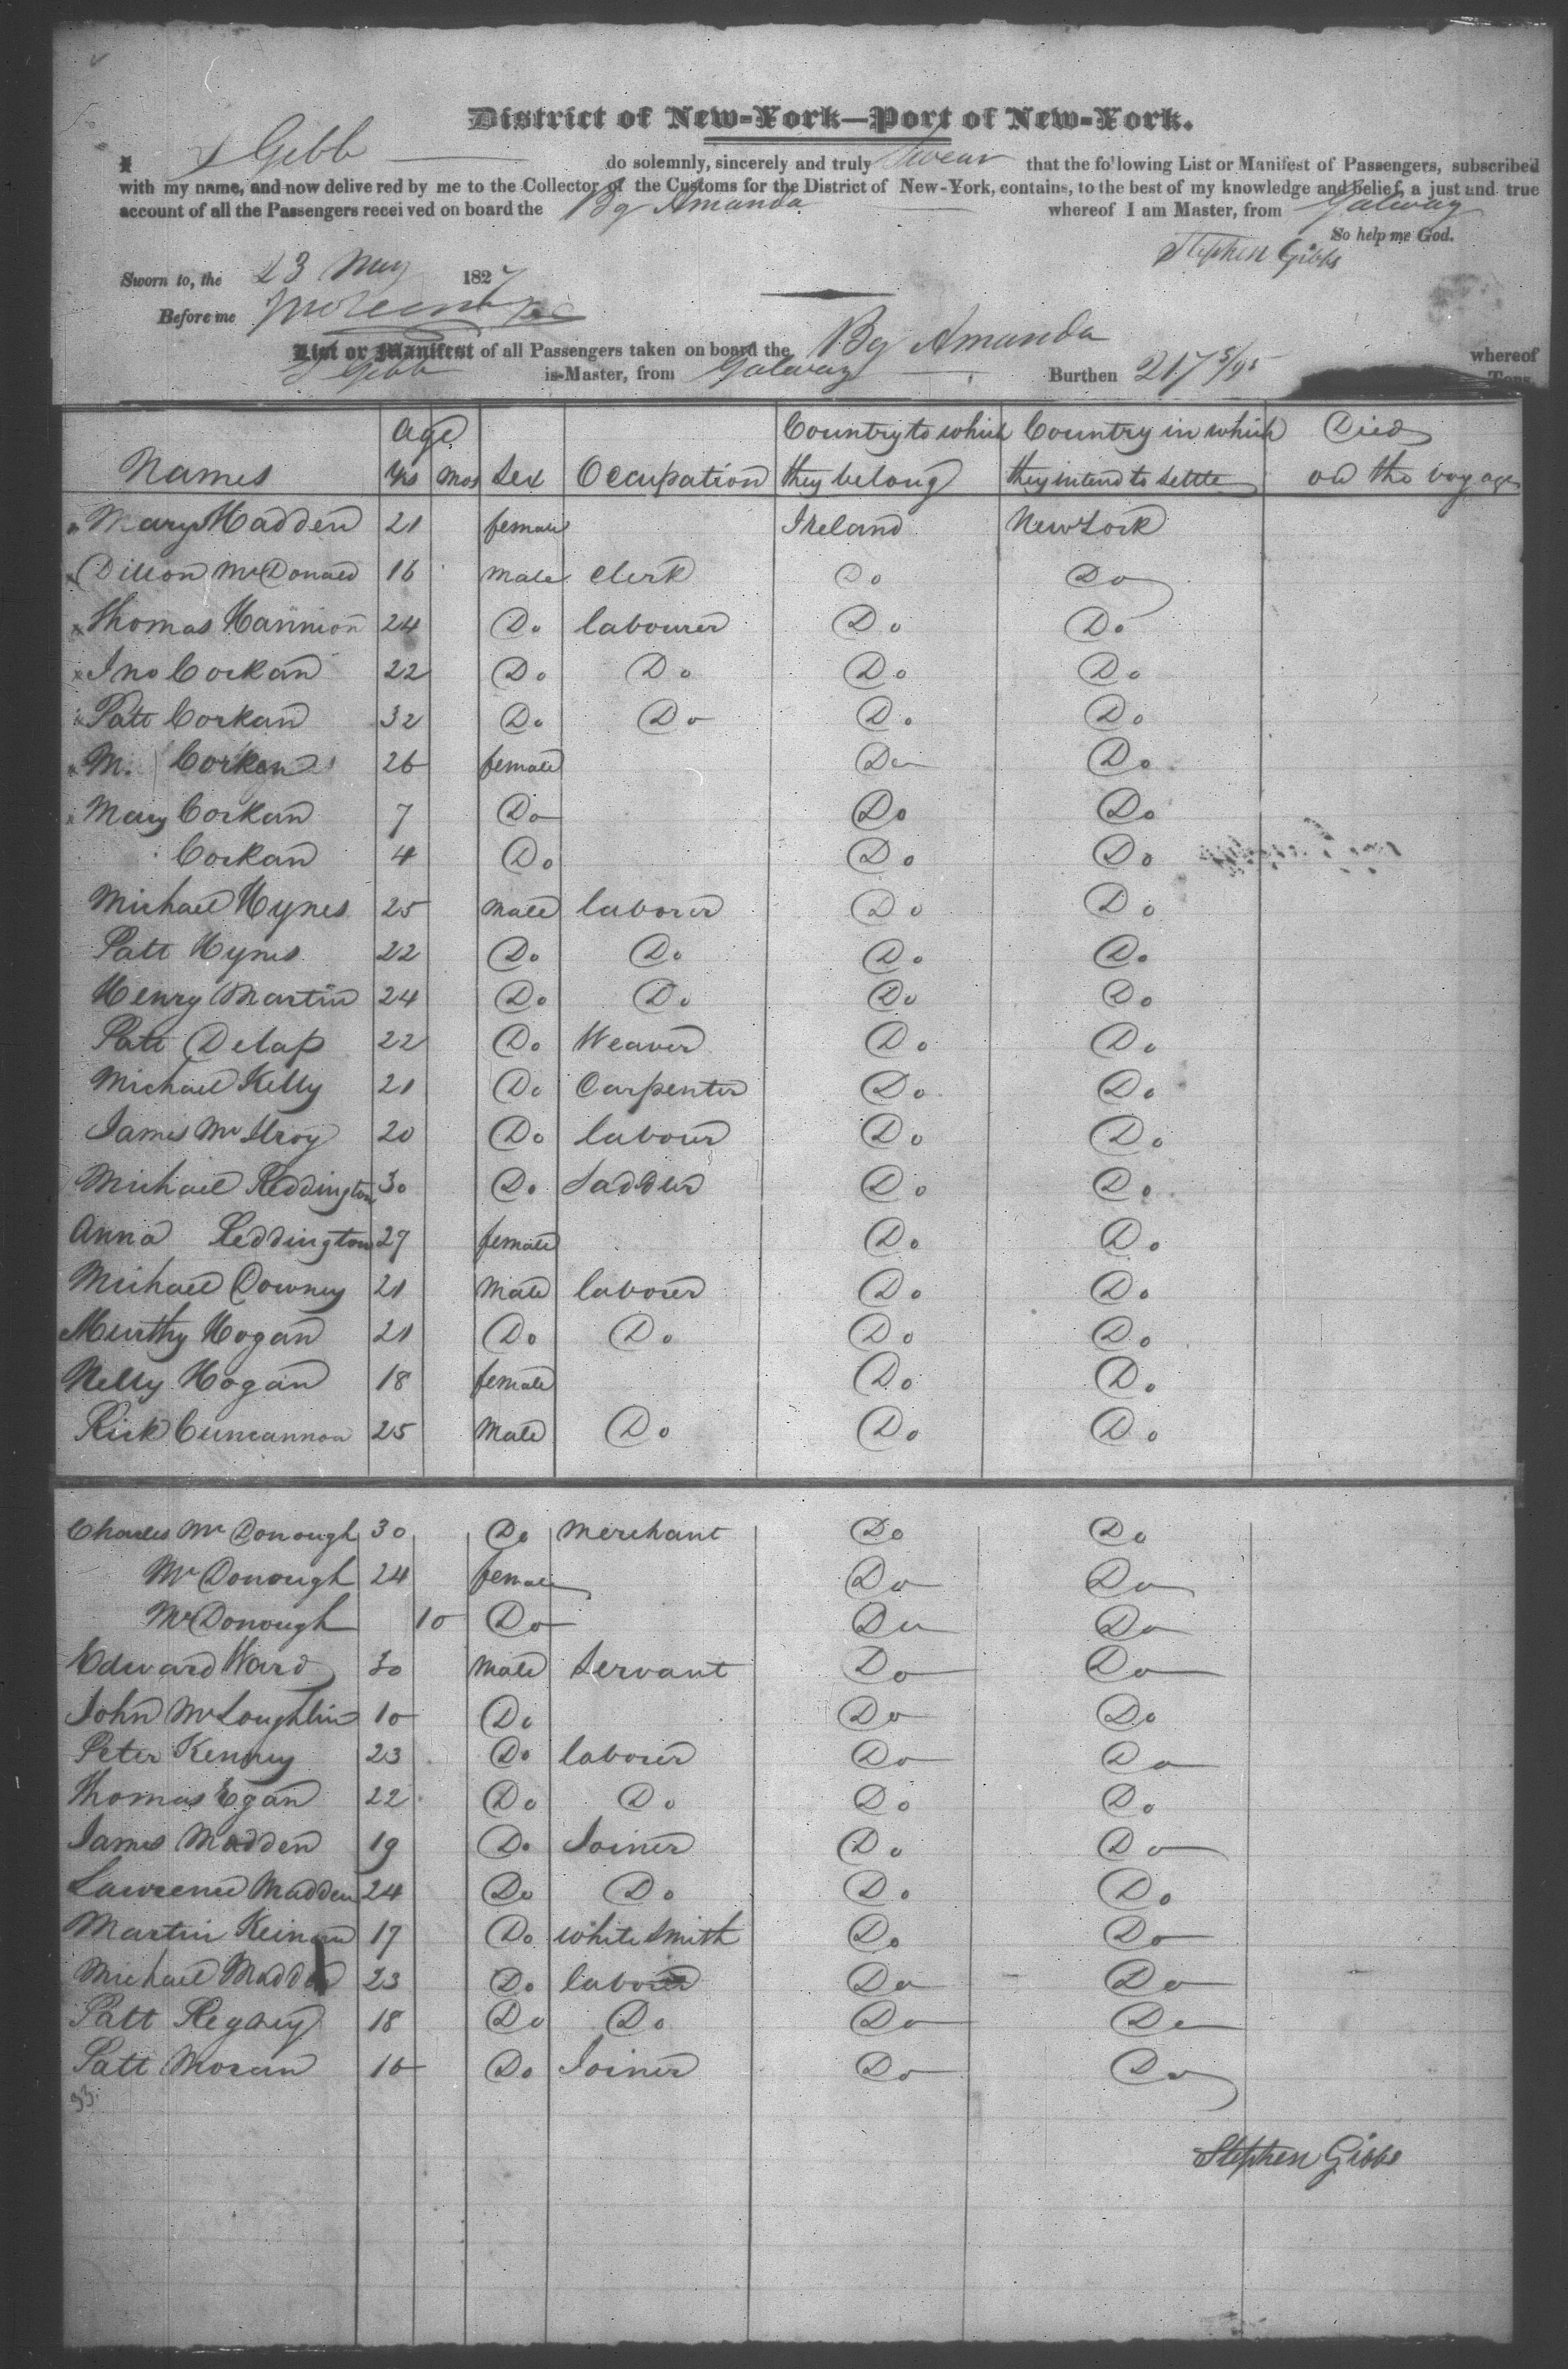 District of New-York—Port of New-York.
I S Gibb do solemnly, sincerely and truly Swear that the fo'lowing List or Manifest of Passengers, subscribed
with my name, and now delivered by me to the Collector of the Customs for the District of New-York, contains, to the best of my knowledge and belief, a just and true
account of all the Passengers received on board the Bg Amanda whereof I am Master, from Galway
So help me God.
Stephen Gibbs
Sworn to, the 23 May 1827
Before me
List or Manifest of all Passengers taken on board the Bg Amanda whereof
S Gibb is Master, from Galway Burthen 217 5/95 Tons
Names Age Yrs Mos Sex Occupation Country to which they belong Country in which they intend to settle Died on the voyage
Mary Madden 21 female Ireland New York
Dillon McDonald 16 Male Clerk Do Do
Thomas Hannion 24 Do labourer Do Do
Jno Corkan 22 Do Do Do Do
Patt Corkan 32 Do Do Do Do
M. Corkan 26 female Do Do
Mary Corkan 7 Do Do Do
Corkan 4 Do Do Do
Michael Hynes 25 Male laborer Do Do
Patt Hynes 22 Do Do Do Do
Henry Martin 24 Do Do Do Do
Patt Delap 22 Do Weaver Do Do
Michael Kelly 21 Do Carpenter Do Do
James McIlroy 20 Do labour Do Do
Michael Reddington 30 Do Saddler Do Do
Anna Reddington 27 female Do Do
Michael Downey 21 Male laborer Do Do
Murthy Hogan 21 Do Do Do Do
Nelly Hogan 18 female Do Do
Rick Cuncannon 25 Male Do Do Do
Charles McDonough 30 Do Merchant Do Do
McDonough 24 female Do Do
McDonough 10 Do Do Do
Edward Ward 30 Male Servant Do Do
John McLoughlin 10 Do Do Do
Peter Kenney 23 Do laborer Do Do
Thomas Egan 22 Do Do Do Do
James Madden 19 Do Joiner Do Do
Lawrence Madden 24 Do Do Do Do
Martin 17 Do White Smith Do Do
Michael Madden 23 Do laborer Do Do
Patt 18 Do Do Do Do
Patt Moran 16 Do Joiner Do Do
33.
Stephen Gibbs